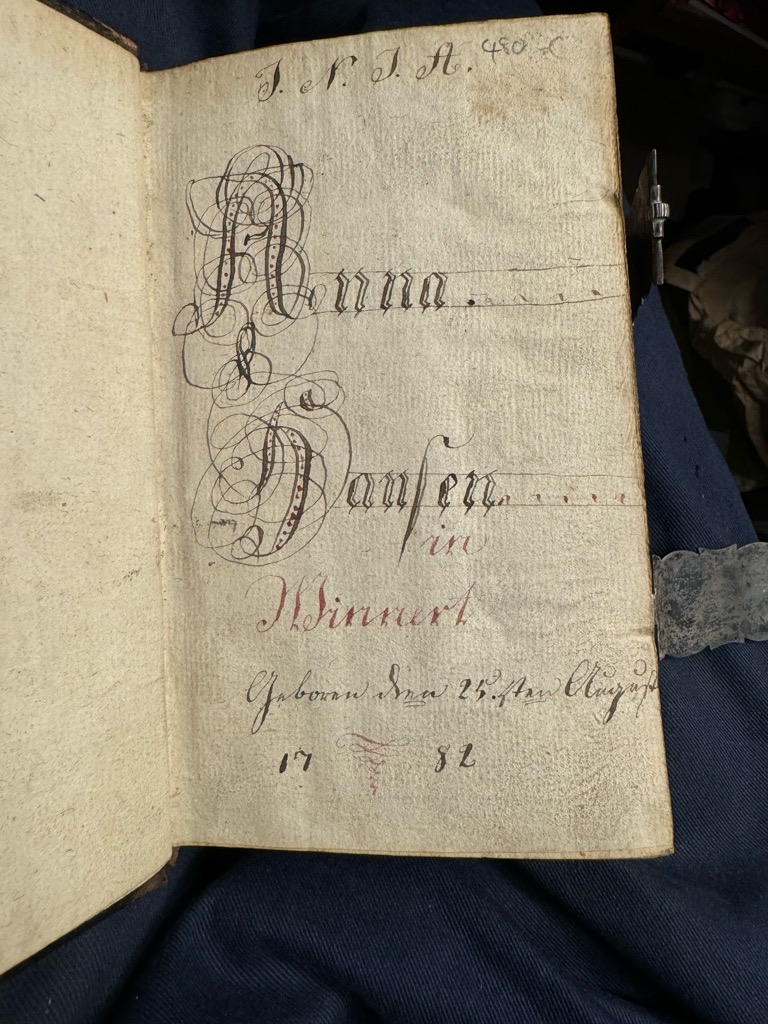 J. N. J. A.
Anna.
Hansen
in
Winnert
Geboren den 25.sten August
17 82